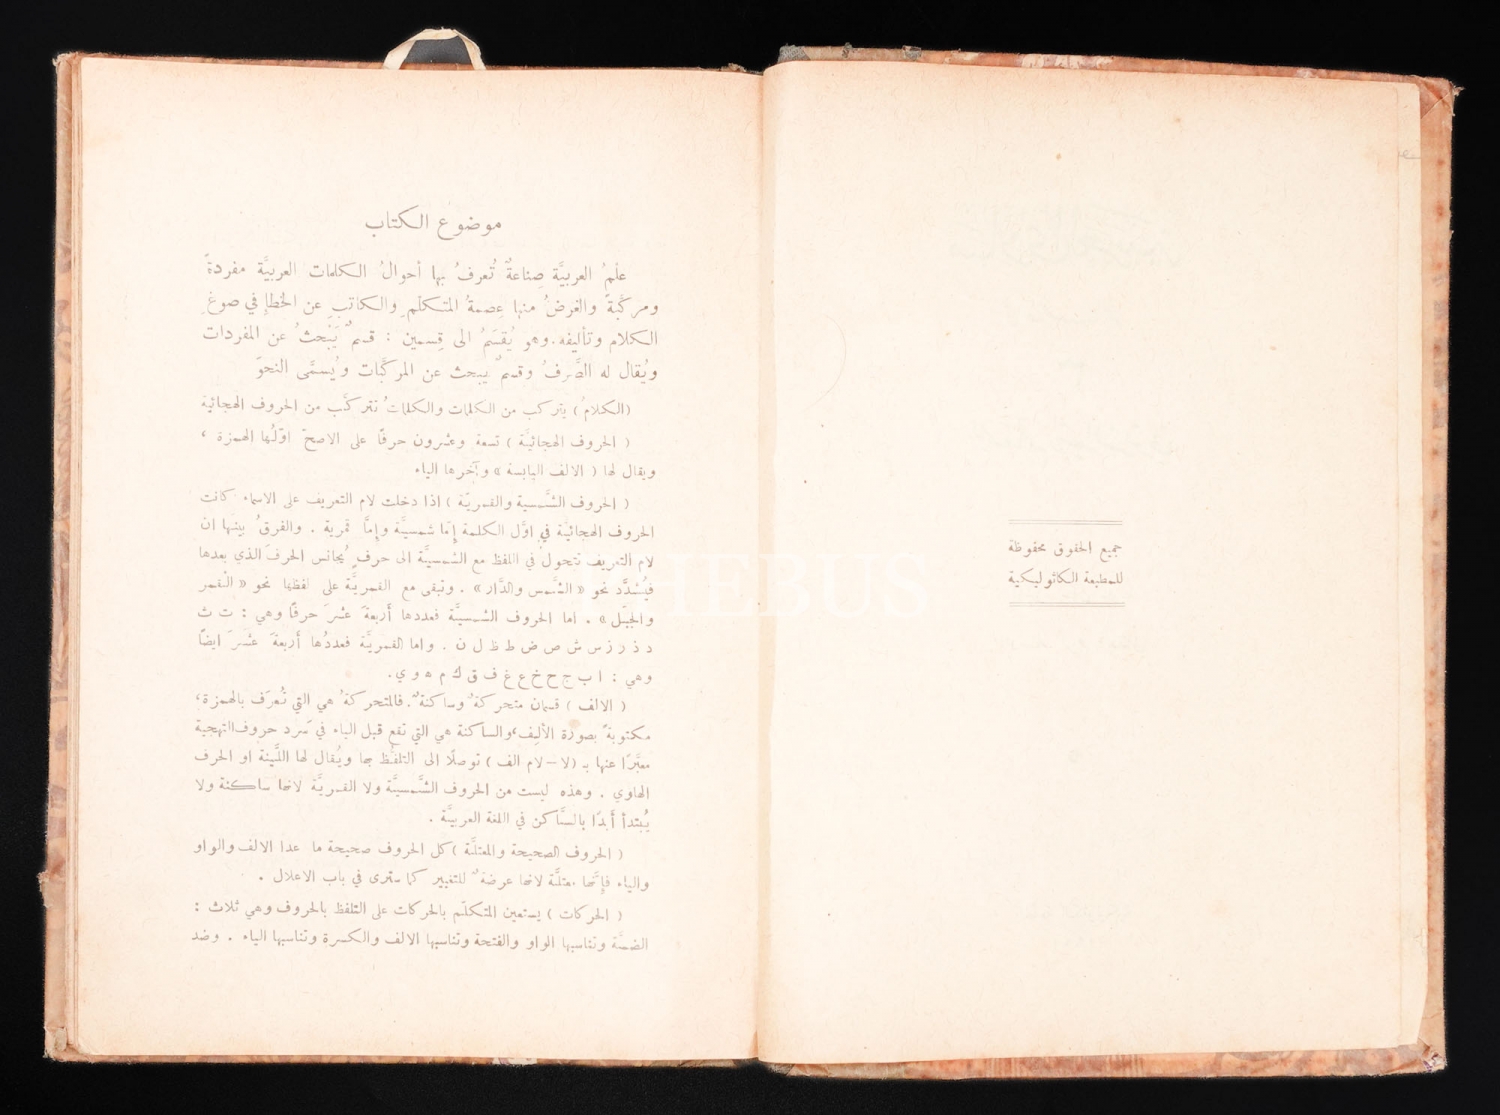 جميع الحقوق محفوظة
للمطبعة الكاثوليكية
موضوع الكتاب
علْمُ العربيَّة صِناعةٌ تُعرفُ بها أحوالُ الكلمات العربيَّة مفردةً
ومركَّبةً والغرضُ منها عِصمةُ المتكلّمِ والكاتبِ عن الخطإِ في صوغِ
الكلام وتأليفه. وهو يُقسَمُ الى قِسمين : قسمٌ يَبْحثُ عن المفردات
ويُقال له الصَّرفُ وقسمٌ يبحث عن المركَّبات ويُسمَّى النحوَ
(الكلامُ) يتركب من الكلمات والكلماتُ تتركَّب من الحروف الهجائية
( الحروف الهجائيَّة ) تسعة وعشرون حرفًا على الاصحّ اوَّلُها الهمزة ،
ويقال لها ( الالف اليابسة » وآخرها الياء
( الحروف الشَّمسية والقمريَّة ) اذا دخلت لام التعريف على الاسماء كانت
الحروف الهجائيَّة في اوَّل الكلمة إِمَّا شمسيَّة وإِمَّا قمرية . والفرقُ بينها ان
لام التعريف تتحول في اللفظ مع الشمسيَّة الى حرفٍ يُجانس الحرفَ الذي بعدها
فيُشدَّد نحو « الشَّمس والدَّار » . وتبقى مع القمريَّة على لفظها نحو « القمر
والجبَل » . اما الحروف الشمسيَّة فعددها أَربعةَ عشرَ حرفًا وهي : ت ث
د ذ ر ز س ش ص ض ط ظ ل ن . واما القمريَّة فعددُها أَربعةَ عشرَ ايضًا
وهي : ا ب ج ح خ ع غ ف ق ك م ه و ي.
( الالف ) قسمان متحركةٌ وساكنةٌ. فالمتحركةُ هي التي تُعرَف بالهمزة،
مكتوبةً بصورة الأَلِف، والساكنة هي التي تقع قبل الياء في سَرد حروف التهجية
معبَّرًا عنها بـ (لا – لام الف ) توصلًا الى التلفُّظ بها ويُقال لها اللَّيِّنة او الحرف
الهاوي . وهذه ليست من الحروف الشَّمسيَّة ولا القمريَّة لانها ساكنة ولا
يُبتدأ أَبدًا بالسَّاكن في اللغة العربيَّة .
( الحروف الصحيحة والمعتلَّة ) كل الحروف صحيحة ما عدا الالف والواو
والياء فإنَّها معتلَّة لانها عرضةٌ للتغيير كما سترى في باب الاعلال .
( الحركات ) يستعين المتكلّم بالحركات على التلفظ بالحروف وهي ثلاث :
الضمَّة وتناسبها الواو والفتحة وتناسبها الالف والكسرة وتناسبها الياء . وضد
PHEBUS